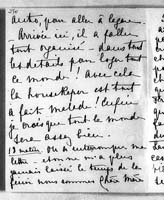 auto, pour aller à legare.
Arrivée ici, il a fallu
tout organiser – dans tout
les details pour loger tout
le monde! Avec cela
la housekeeper est tout
à fait malade! Enfin
je crois que tout le monde
sera assez bien.
13 matin On a interrompu ma
lettre et on ne m'a plus
jamais laissé le temps de la
finir nous sommes chère Mère